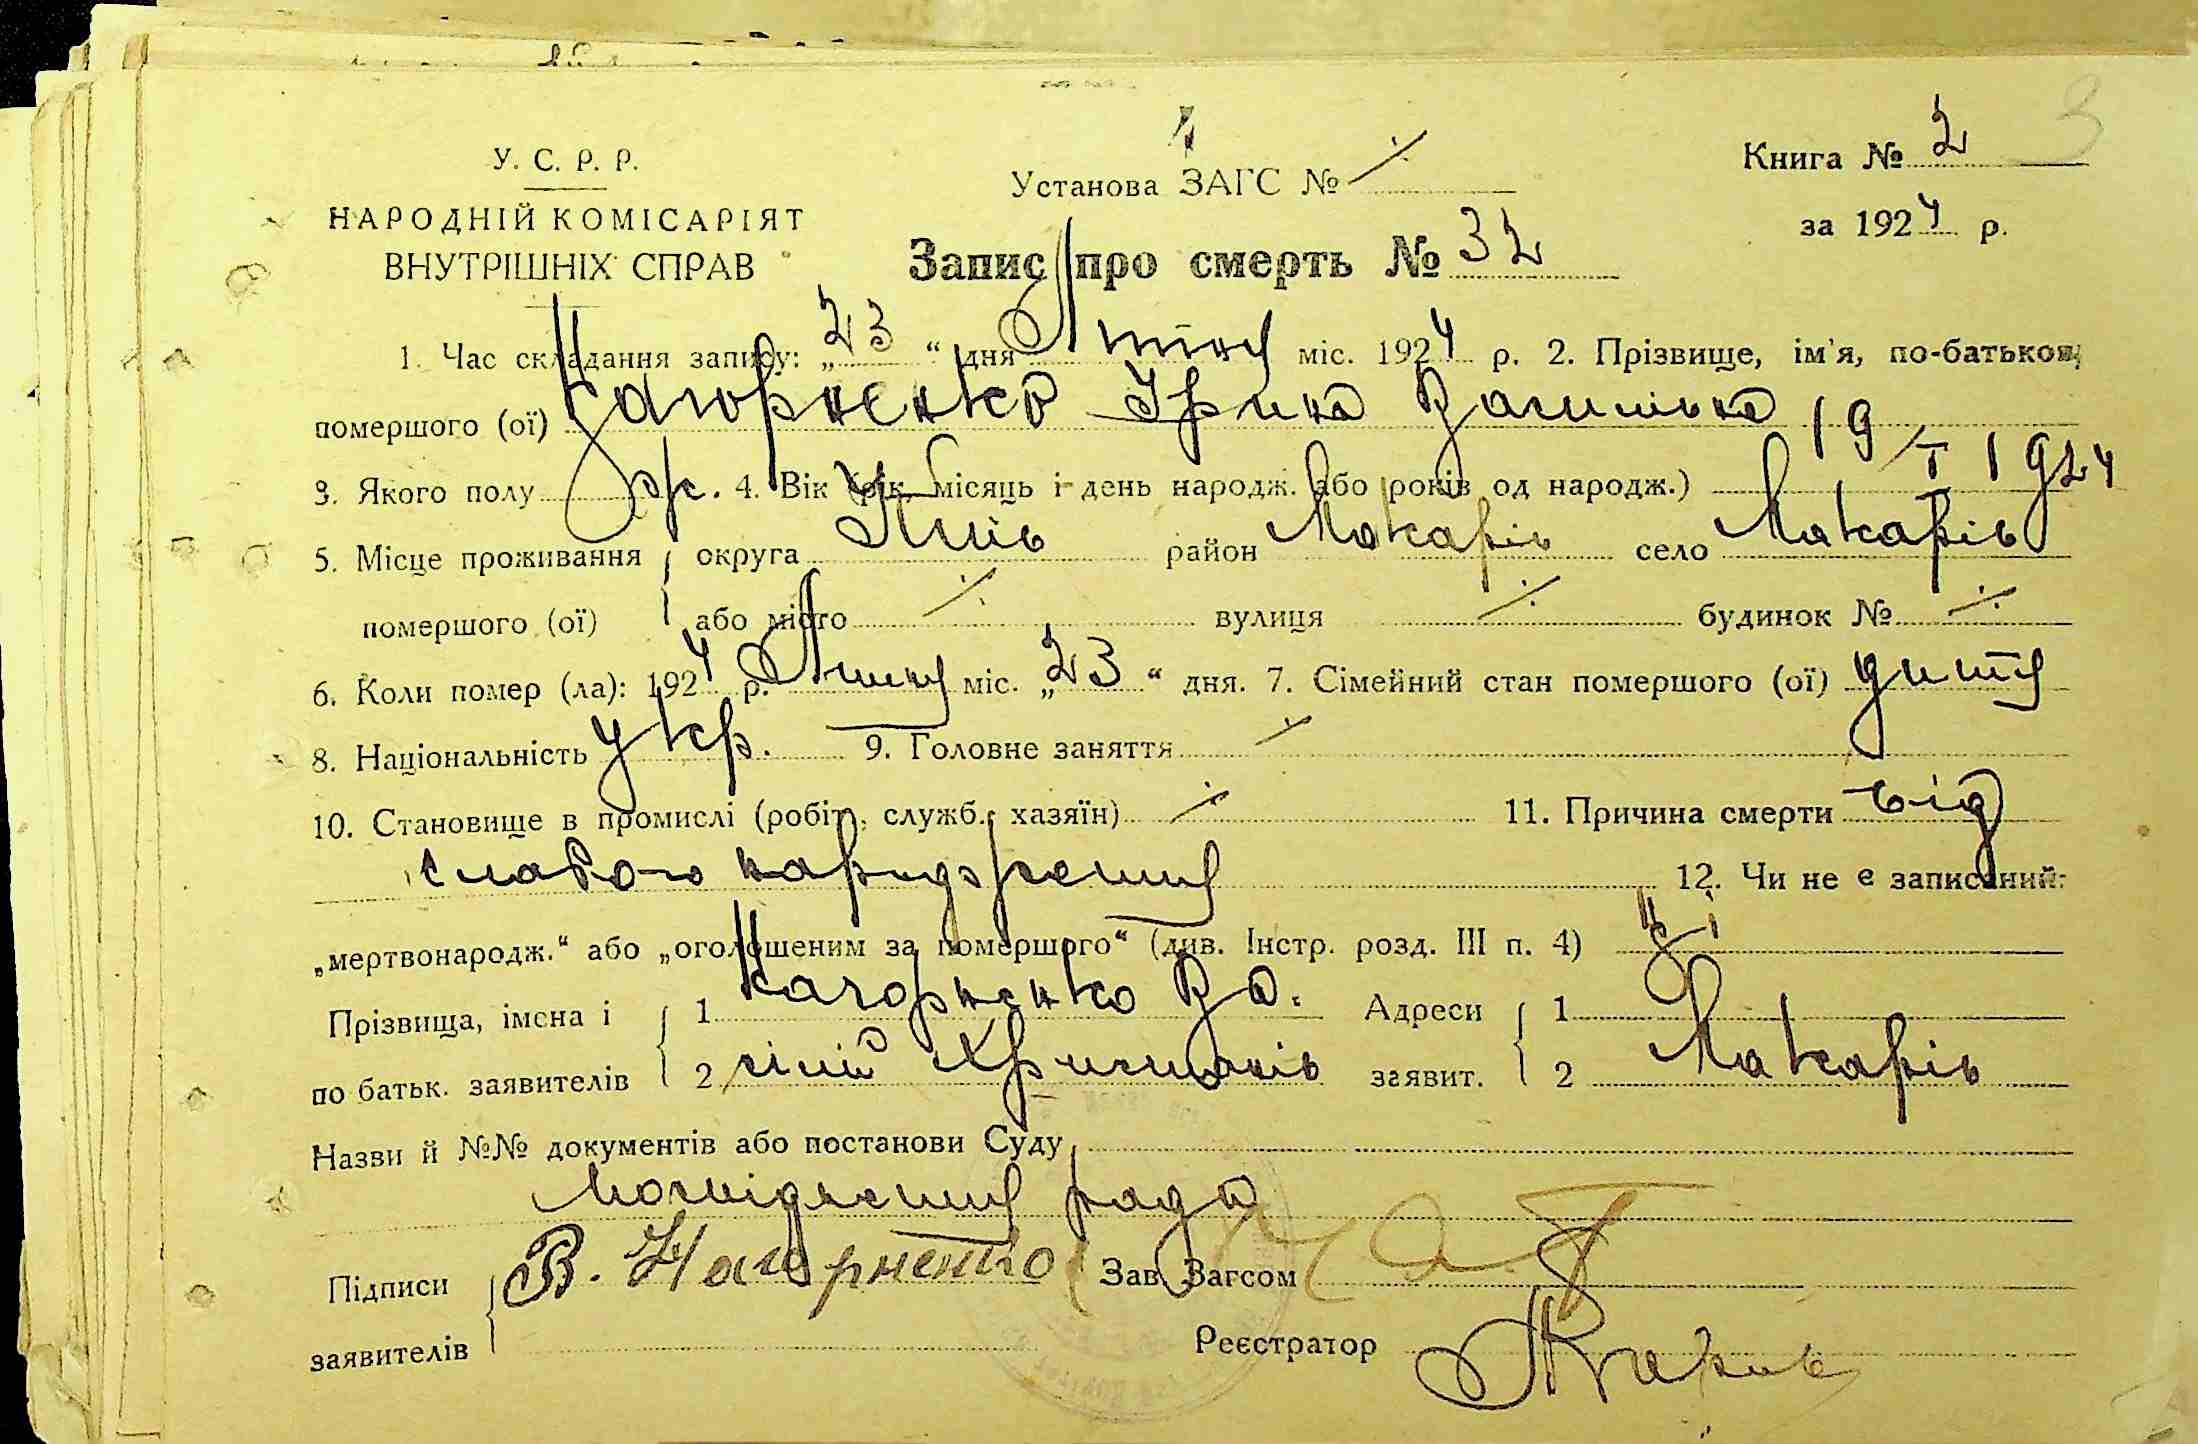 3
У. С. Р. Р.
НАРОДНІЙ КОМІСАРІЯТ
ВНУТРІШНІХ СПРАВ
Установа ЗАГС №
Книга № 2
за 1924 р.
Запис про смерть № 32
1. Час складання запису: „23“ дня Лютня міс. 1924 р. 2. Прізвище, ім'я, по-батькові
помершого (ої) Нагорненко Ірина Васильівна 19/I 1924
3. Якого полу ж. 4. Вік (рік, місяць і день народж. або років од народж.)
5. Місце проживання округа Київ район Макарів село Макарів
помершого (ої) або місто ⁒ вулиця ⁒ будинок № ⁒
6. Коли помер (ла): 1924 р. міс. „23“ дня. 7. Сімейний стан помершого (ої) дитя
8. Національність укр. 9. Головне заняття
10. Становище в промислі (робіт., служб., хазяїн) ⁒ 11. Причина смерти від
слабого народження 12. Чи не є записаний:
„мертвонародж.“ або „оголошеним за помершого“ (див. Інстр. розд. III п. 4) Ні
Прізвища, імена і 1 Нагорненко Ва. Адреси 1
по батьк. заявителів 2 силій заявит. 2 Макарів
Назви й №№ документів або постанови Суду
рада
Підписи В. Нагорненко Зав. Загсом
заявителів Реєстратор